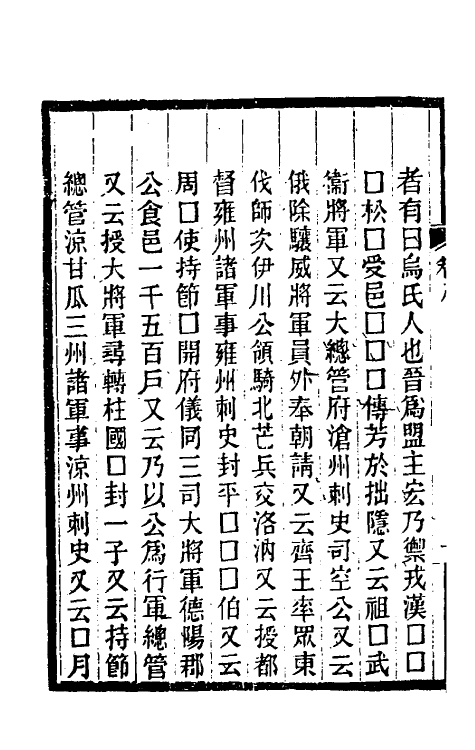 者有曰烏氏人也晉爲盟主宏乃禦戎漢□□
□松□受邑□□□傳芳於拙隱又云祖□武
衞將軍又云大總管府滄州刺史司空公又云
俄除驤威將軍員外奉朝請又云齊王率眾東
伐師次伊川公領騎北芒兵交洛汭又云授都
督雍州諸軍事雍州刺史封平□□□伯又云
周□使持節□開府儀同三司大將軍德陽郡
公食邑一千五百戶又云乃以公爲行軍總管
又云授大將軍尋轉柱國□封一子又云持節
總管涼甘瓜三州諸軍事涼州刺史又云□月